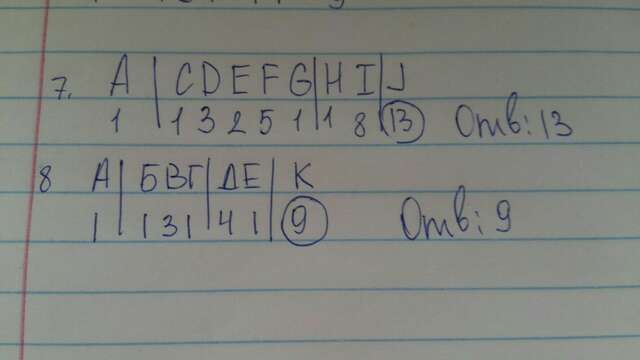 7. A | C D E F G | H I | J
1 | 1 3 2 5 1 | 1 8 | 13 Отв: 13
8 А | Б В Г | Д Е | К
1 | 1 3 1 | 4 1 | 9 Отв: 9